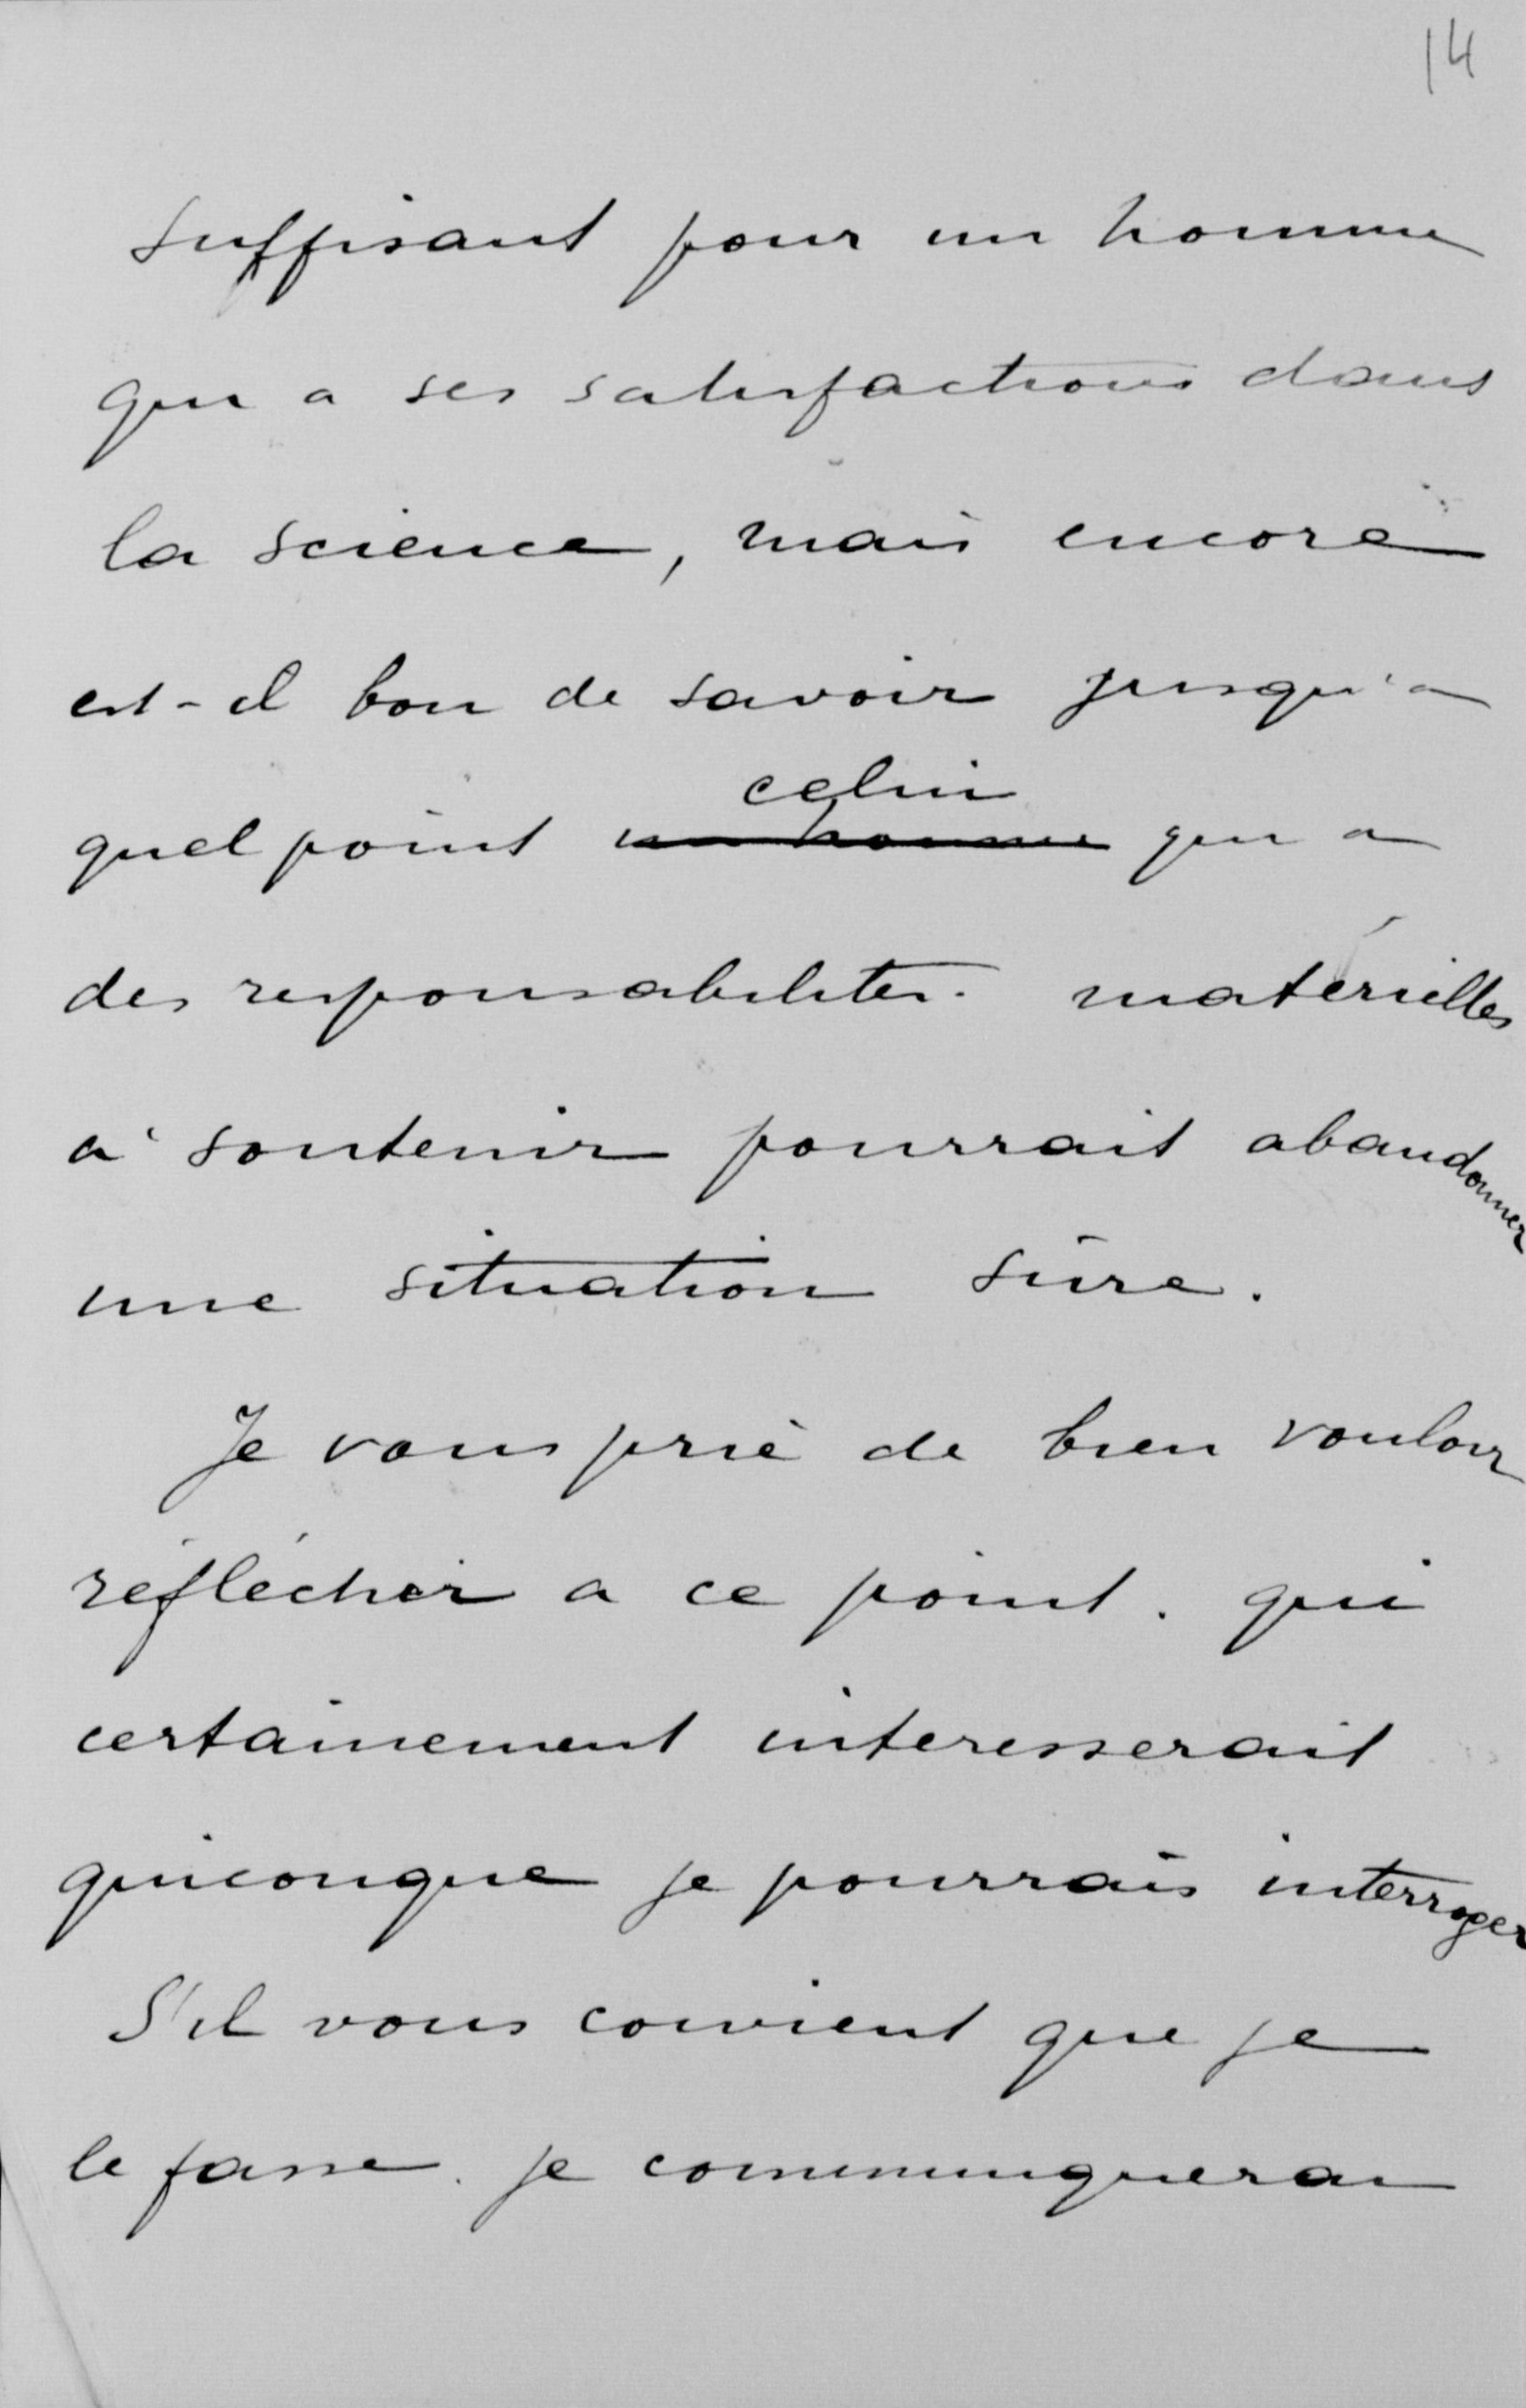 14
suffisant pour un homme
qui a ses satisfactions dans
la science, mais encore
est-il bon de savoir jusqu'a
celui
quel point un homme qui a
des responsabilites matérielles
à soutenir pourrait abandonner
une situation sûre.
Je vous prie de bien vouloir
réfléchir a ce point. qui
certainement interesserait
quiconque je pourrais interroger
S'il vous convient que je
le fasse. je communiquerai